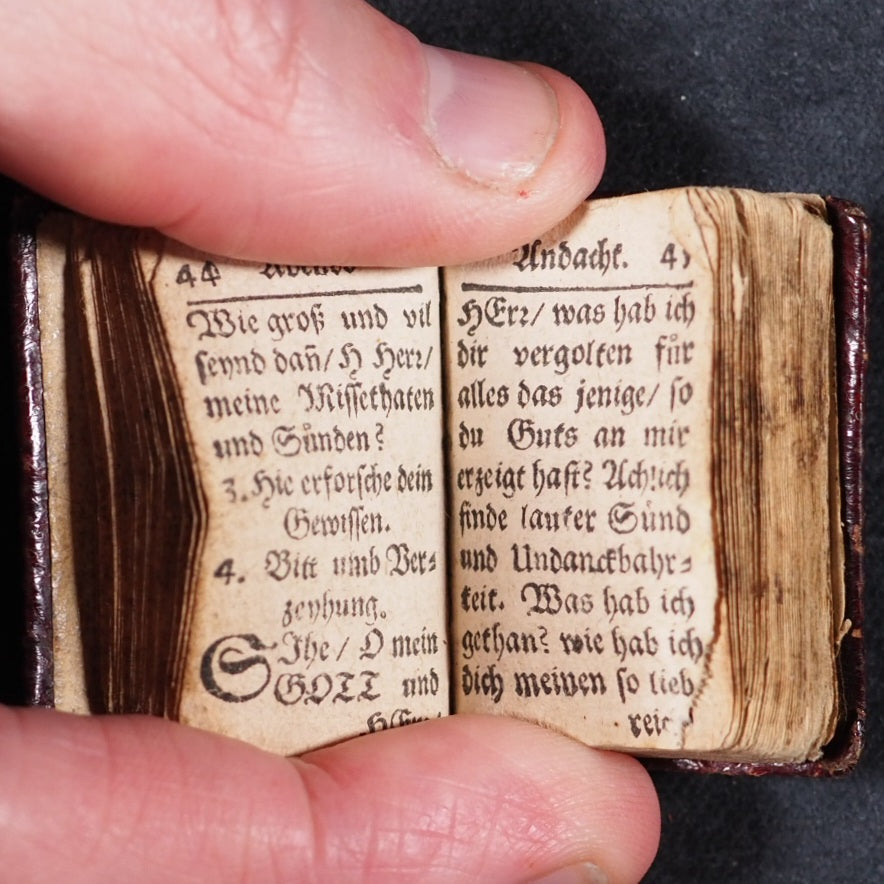 44 Abends
Wie groß und vil
seynd dañ/ H Herr/
meine Missethaten
und Sünden?
3. Hie erforsche dein
Gewissen.
4. Bitt umb Ver-
zeyhung.
SIhe/ O mein
GOTT und
HErr/
Andacht. 45
HErr/ was hab ich
dir vergolten für
alles das jenige/ so
du Guts an mir
erzeigt hast? Ach! ich
finde lauter Sünd
und Undanckbahr-
keit. Was hab ich
gethan? wie hab ich
dich meinen so lieb
reic